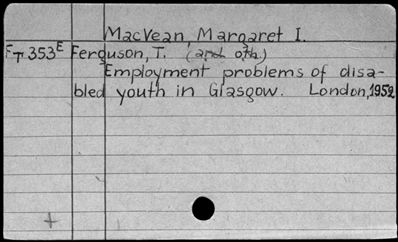 MacVean, Margaret I.
FT 353E Ferguson, T. (and oth.)
Employment problems of disa-
bled youth in Glasgow. London, 1952